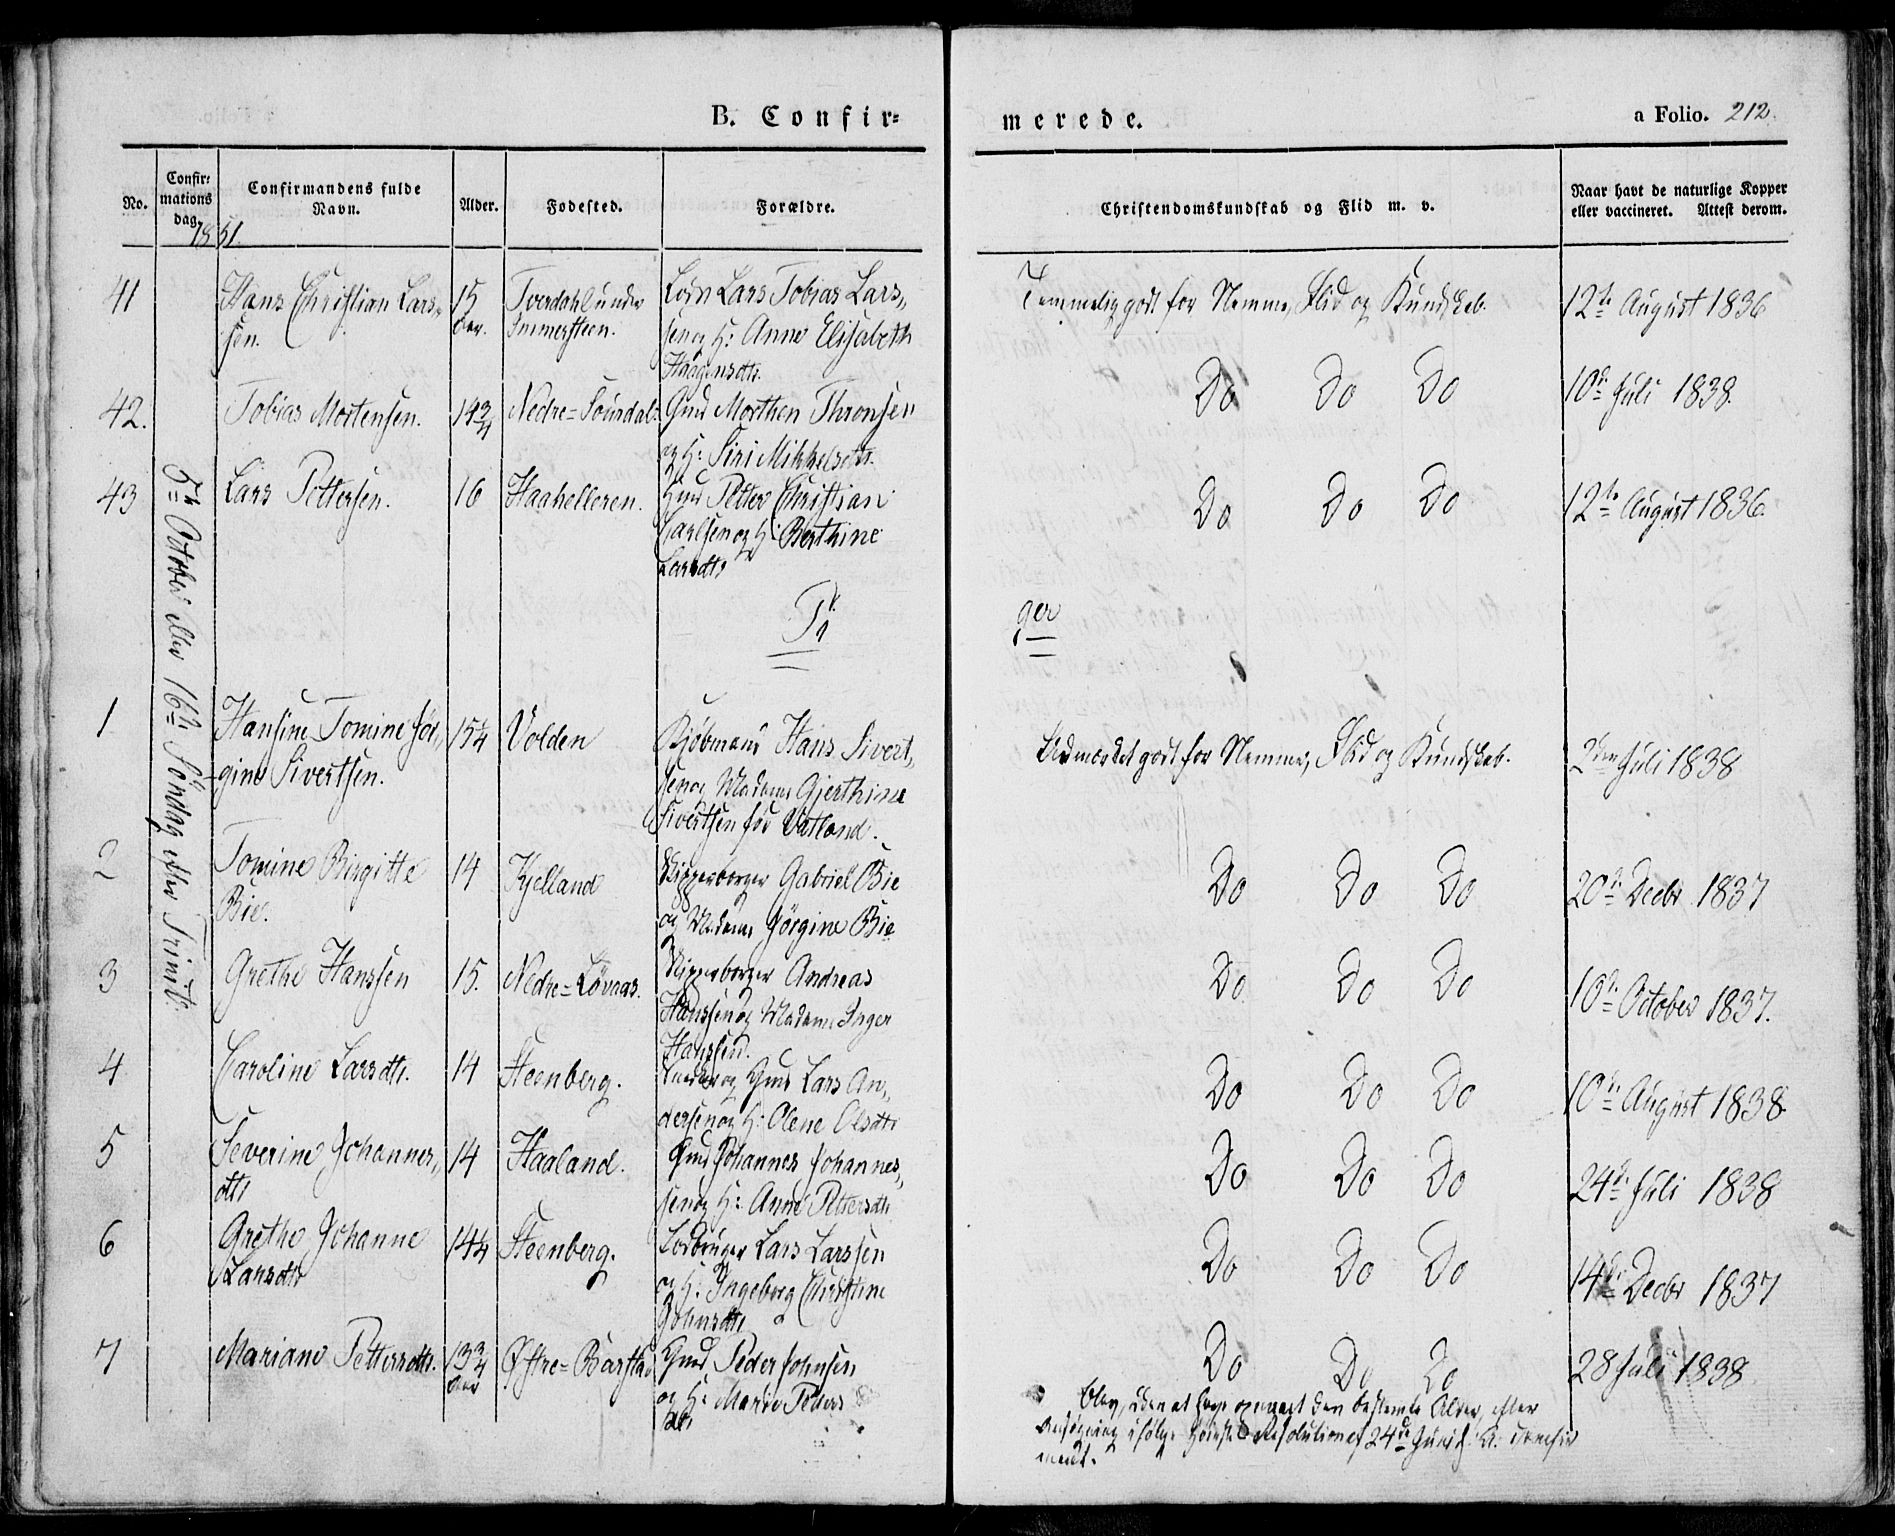 B. Confir=
merede.
a Folio. 212.
No.
Confir:
mations
dag.
1851.
Confirmandens fulde
Navn.
Alder.
Fødested.
Forældre.
Christendomskundskab og Flid m. v.
Naar havt de naturlige Kopper
eller vaccineret. Attest derom.
5te October eller 16de Søndag efter Trinit:
41 Hans Christian Lars,, 15 Tverdahl under Lods Lars Tobias Lars,, Temmelig godt for Nemme, Flid og Kundskab. 12te August 1836
sen. Aar. Immersteen. sen og H: Anne Elisabeth
Haagensdtr.
42. Tobias Mortensen. 14 3/4 Nedre= Gmd Morthen Thronsen Do Do Do 10de Juli 1838.
og H: Siri Mikkelsdtr.
43 Lars Pettersen. 16 Haahelleren. Hmd Petter Christian Do Do Do 12te August 1836.
Carlsen og H: Berthine
Larsdtr
Pi
ger
1 Hansine Tomine Jør,, 15 1/4 Volden Kjøbmand Hans Sivert,, Udmærket godt for Nemme, Flid og Kundskab. 2den Juli 1838
gine Sivertsen. sen og Madame Gjerthine
Sivertsen fød Vatland.
2 Tomine Birgitte 14 Kjelland Skipperborger Gabriel Bie Do Do Do 20de Decbr 1837
Bie. og Madame Jørgine Bie
3 Grethe Hanssen 15. Nedre=Løvaas. Skipperborger Andreas Do Do Do 10de October 1837.
Hanssen og Madame Inger
Hanssen.
4 Caroline Larsdtr. 14 Steenberg. og Gmd Lars An,, Do Do Do 10de August 1838.
dersen og H: Olene Olsdtr
5 Severine Johannes,, 14 Haaland. Gmd Johannes Johannes,, Do Do Do 24de Juli 1838
dtr sen og H: Anne Pettersdtr
6 Grethe Johanne 14 1/4 Steenberg. Lars Larssen Do Do Do 14de Decbr 1837
Larsdtr og H: Ingeborg Christine
Johnsdtr
7 Mariane Pettersdtr. 13 3/4 Øffre=Barstad Gmd Peder Johnsen Do Do Do 28 Juli 1838.
Aar og H: Marie Peders
dtr
Blev, uden at have opnaaet den bestemte Alder, efter
Ansøgning ifølge Resolution af 24de Juni confir
meret.